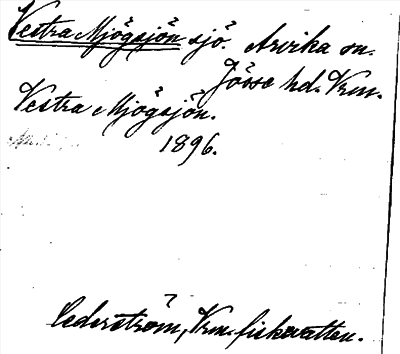 Vestra Mjögsjön sjö. Arvika sn.
Jösse hd. Vrm.
Vestra Mjögsjön.
1896.
Cederström, Vrm. fiskevatten.